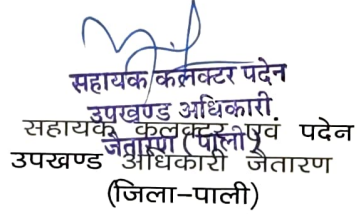 सहायक कलक्टर पदेन
उपखण्ड अधिकारी
जैतारण (पाली)
सहायक कलक्टर एवं पदेन
उपखण्ड अधिकारी जैतारण
(जिला-पाली)